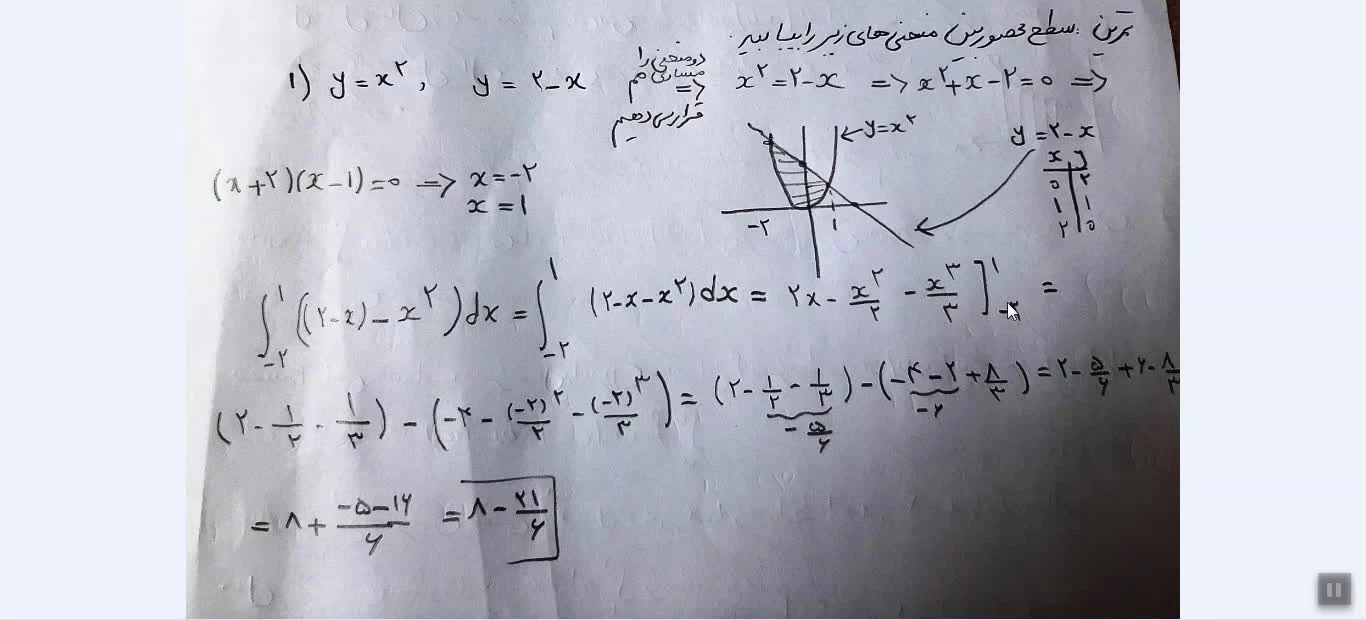 تمرین: سطح محصور بین منحنی‌های زیر را بیابید.
۱) y = x^۲ , y = ۲ - x دو منحنی را مساوی هم قرار می‌دهیم => x^۲ = ۲ - x => x^۲ + x - ۲ = ۰ =>
(x + ۲)(x - ۱) = ۰ => x = -۲
x = ۱
y = x^۲
-۲ ۱
y = ۲ - x
x y
۰ ۲
۱ ۱
۲ ۰
∫_{-۲}^{۱} ((۲ - x) - x^۲) dx = ∫_{-۲}^{۱} (۲ - x - x^۲) dx = ۲x - x^۲/۲ - x^۳/۳ ]_{-۲}^{۱} =
(۲ - ۱/۲ - ۱/۳) - (-۴ - (-۲)^۲/۲ - (-۲)^۳/۳) = (۲ - ۱/۲ - ۱/۳) - (-۴ - ۲ + ۸/۳) = ۲ - ۵/۶ + ۶ - ۸/۳
-۵/۶ -۶
= ۸ + (-۵ - ۱۶)/۶ = ۸ - ۲۱/۶